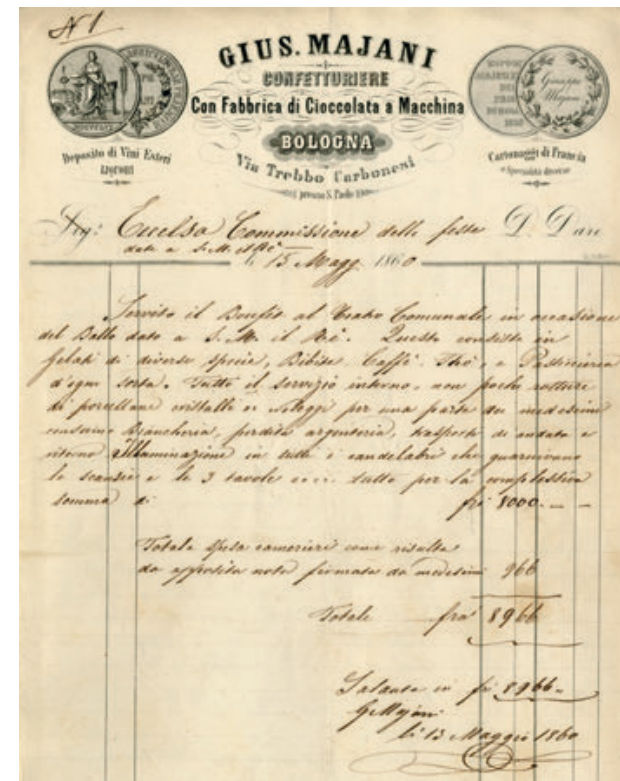 N 1
GIUS. MAJANI
CONFETTURIERE
Con Fabbrica di Cioccolata a Macchina
BOLOGNA
Via Trebbo Carbonesi
presso S. Paolo
Deposito di Vini Esteri
Liquori
Giuseppe
Majani
Cartonaggi di Francia
Specialità diverse
Sig: Eccelsa Commissione delle feste D. Dare
date a S. M. il Rè
li 15 Magg. 1860
Servito il Bouffet al Teatro Comunale in occasione
del Ballo dato a S. M. il Rè. Questo consiste in
gelati di diverse specie, Bibite. Caffè. Thè, e Pasticceria
d'ogni sorta. Tutto il servizio interno, non poche rotture
di porcellane cristalli e noleggi per una parte dei medesimi
Biancheria, perdita argenteria, trasporti di andata e
ritorno Illuminazione in tutti i candelabri che guarnivano
le scansie e le 3 tavole tutto per la complessiva
somma di fri 8000. — —
Totale spesa camerieri come risulta
da apposita nota firmata da medesimi 966
Totale fra 8966
Saldata in fr 8966 —
G Majani
li 15 Maggio 1860